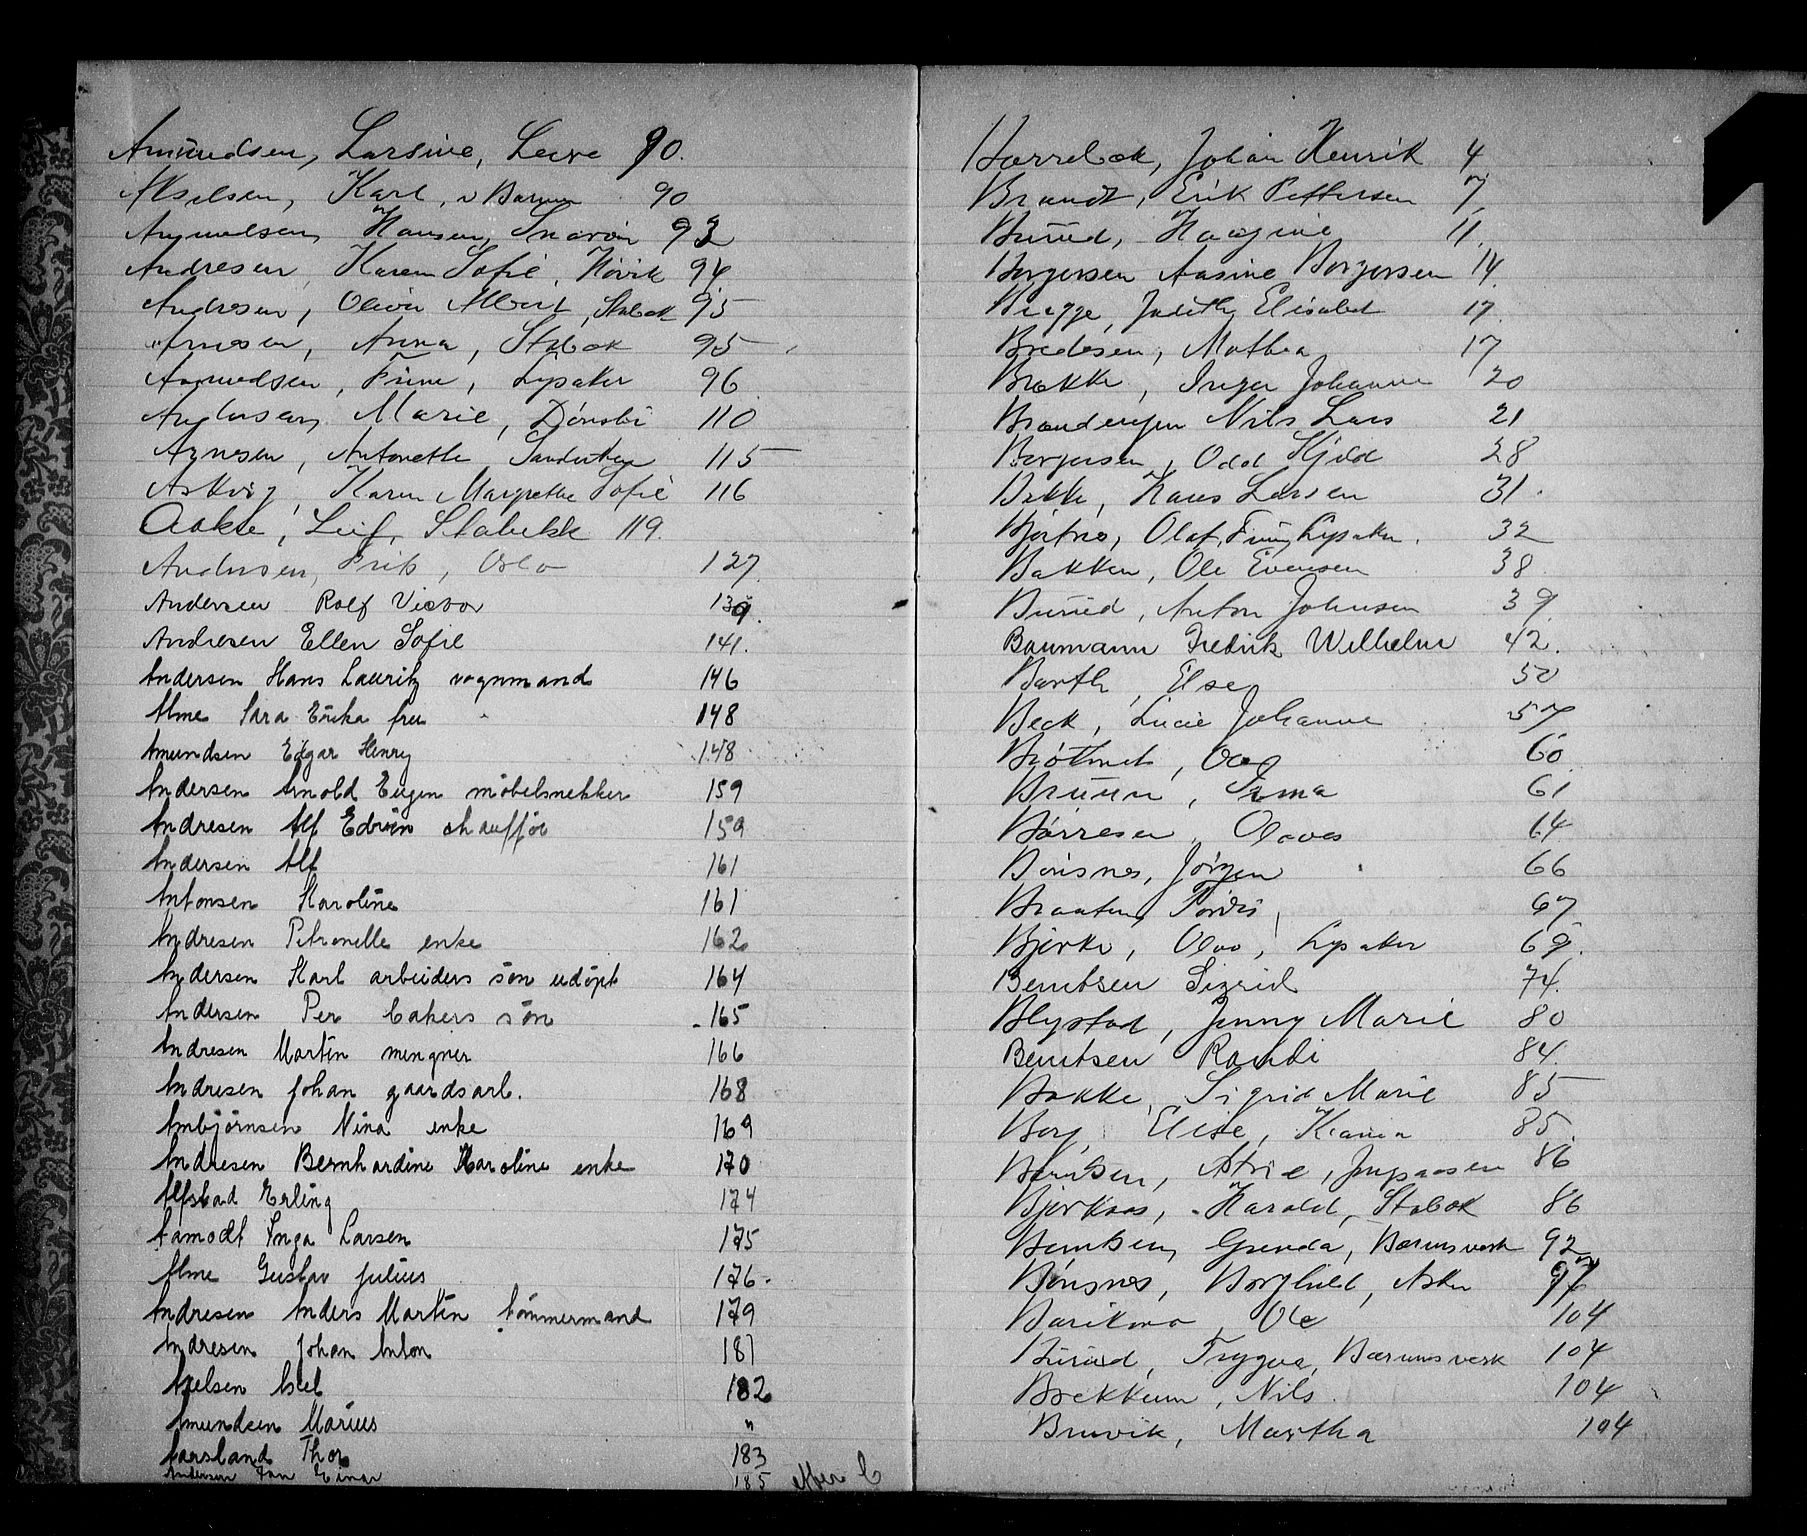 Amundsen, Larsine, 90.
Akselsen, Karl, v Bærum 90
Asmundsen, Hansen, Snarøen 93
Andresen Karen Sofie, Høvik 94
Andresen, Oliver Albert, Stabæk 95
Arnesen, Anna, Stabæk 95
Asmundsen, Lysaker 96
Andersen, Marie, Dønski 110
Agnesen, Antonette Sandviken 115
Askvig, Karen Margrethe Sofie 116
Aakre, Leif, Stabekk 119.
Andersen, Frits, Oslo 127
Andersen Rolf Victor 139.
Andresen Ellen Sofie 141.
Andersen Hans Lauritz vognmand 146
Alme Sara Erika fru 148
Amundsen Edgar Henry 148
Andersen Arnold Eugen möbelsnekker 159
Andresen Alf Edvin chauffør 159
Andersen Alf 161
Antonsen Karoline 161
Andresen Petronelle enke 162
Andersen Karl arbeiders søn udøpt 164
Andersen Per bakers søn 165
Andresen Martin 166
Andresen Johan gaardsarb. 168
Arnbjørnsen Nina enke 169
Andresen Bernhardine Karoline enke 170
Alfstad Erling 174
Aamodt Inga Larsen 175
Alme Gustav Julius 176.
Andresen Anders Martin tømmermand 179
Andresen Johan Anton 181
Axelsen Axel 182
Amundsen Marius "
Aarsland Thor 183
Andersen Jan Einar 185 efter C
Borrebæk, Johan Henrik 4
Brandt, Erik Pettersen 7
Burud, Haagine 11.
Borgersen Aasine Borgersen 14
Bugge, Judith Elisabet 17.
Bredesen, Mathea 17
Brække, Inga Johanne 20
Brandengen Nils Lars 21
Borgersen, Odd Kjeld 28
Bakke, Hans Larsen 31.
Bjørtnes, Olaf, Lysaker. 32
Bakken, Ole Evensen 38
Burud, Anton Johnsen 39.
Baumann Fredrik Wilhelm 42.
Barth, Else 50
Beck, Lucie Johanne 57
Brøttnet, Olaf 60
Bruun, Irma 61
Børresen, Olaves 64
Børisnes, Jørgen 66
Braaten, Tordis 67
Bjerke, Olav, Lysaker 69.
Berntsen Sigrid 74.
Blystad, Jenny Marie 80
Berntsen Randi 84
Bakke, Sigrid Marie 85
Borg, Elise, 85.
Berntsen, Astrid, 86
Bjerkaas, Harald, Stabæk 86
Berntsen, Gunda, Bærumsverk 92
Børisnes, Borghild, Asker 97
Barikmo, Ole 104
Burud, Trygve, Bærumsverk 104
Brekkum, Nils. 104
Bruvik, Martha 104